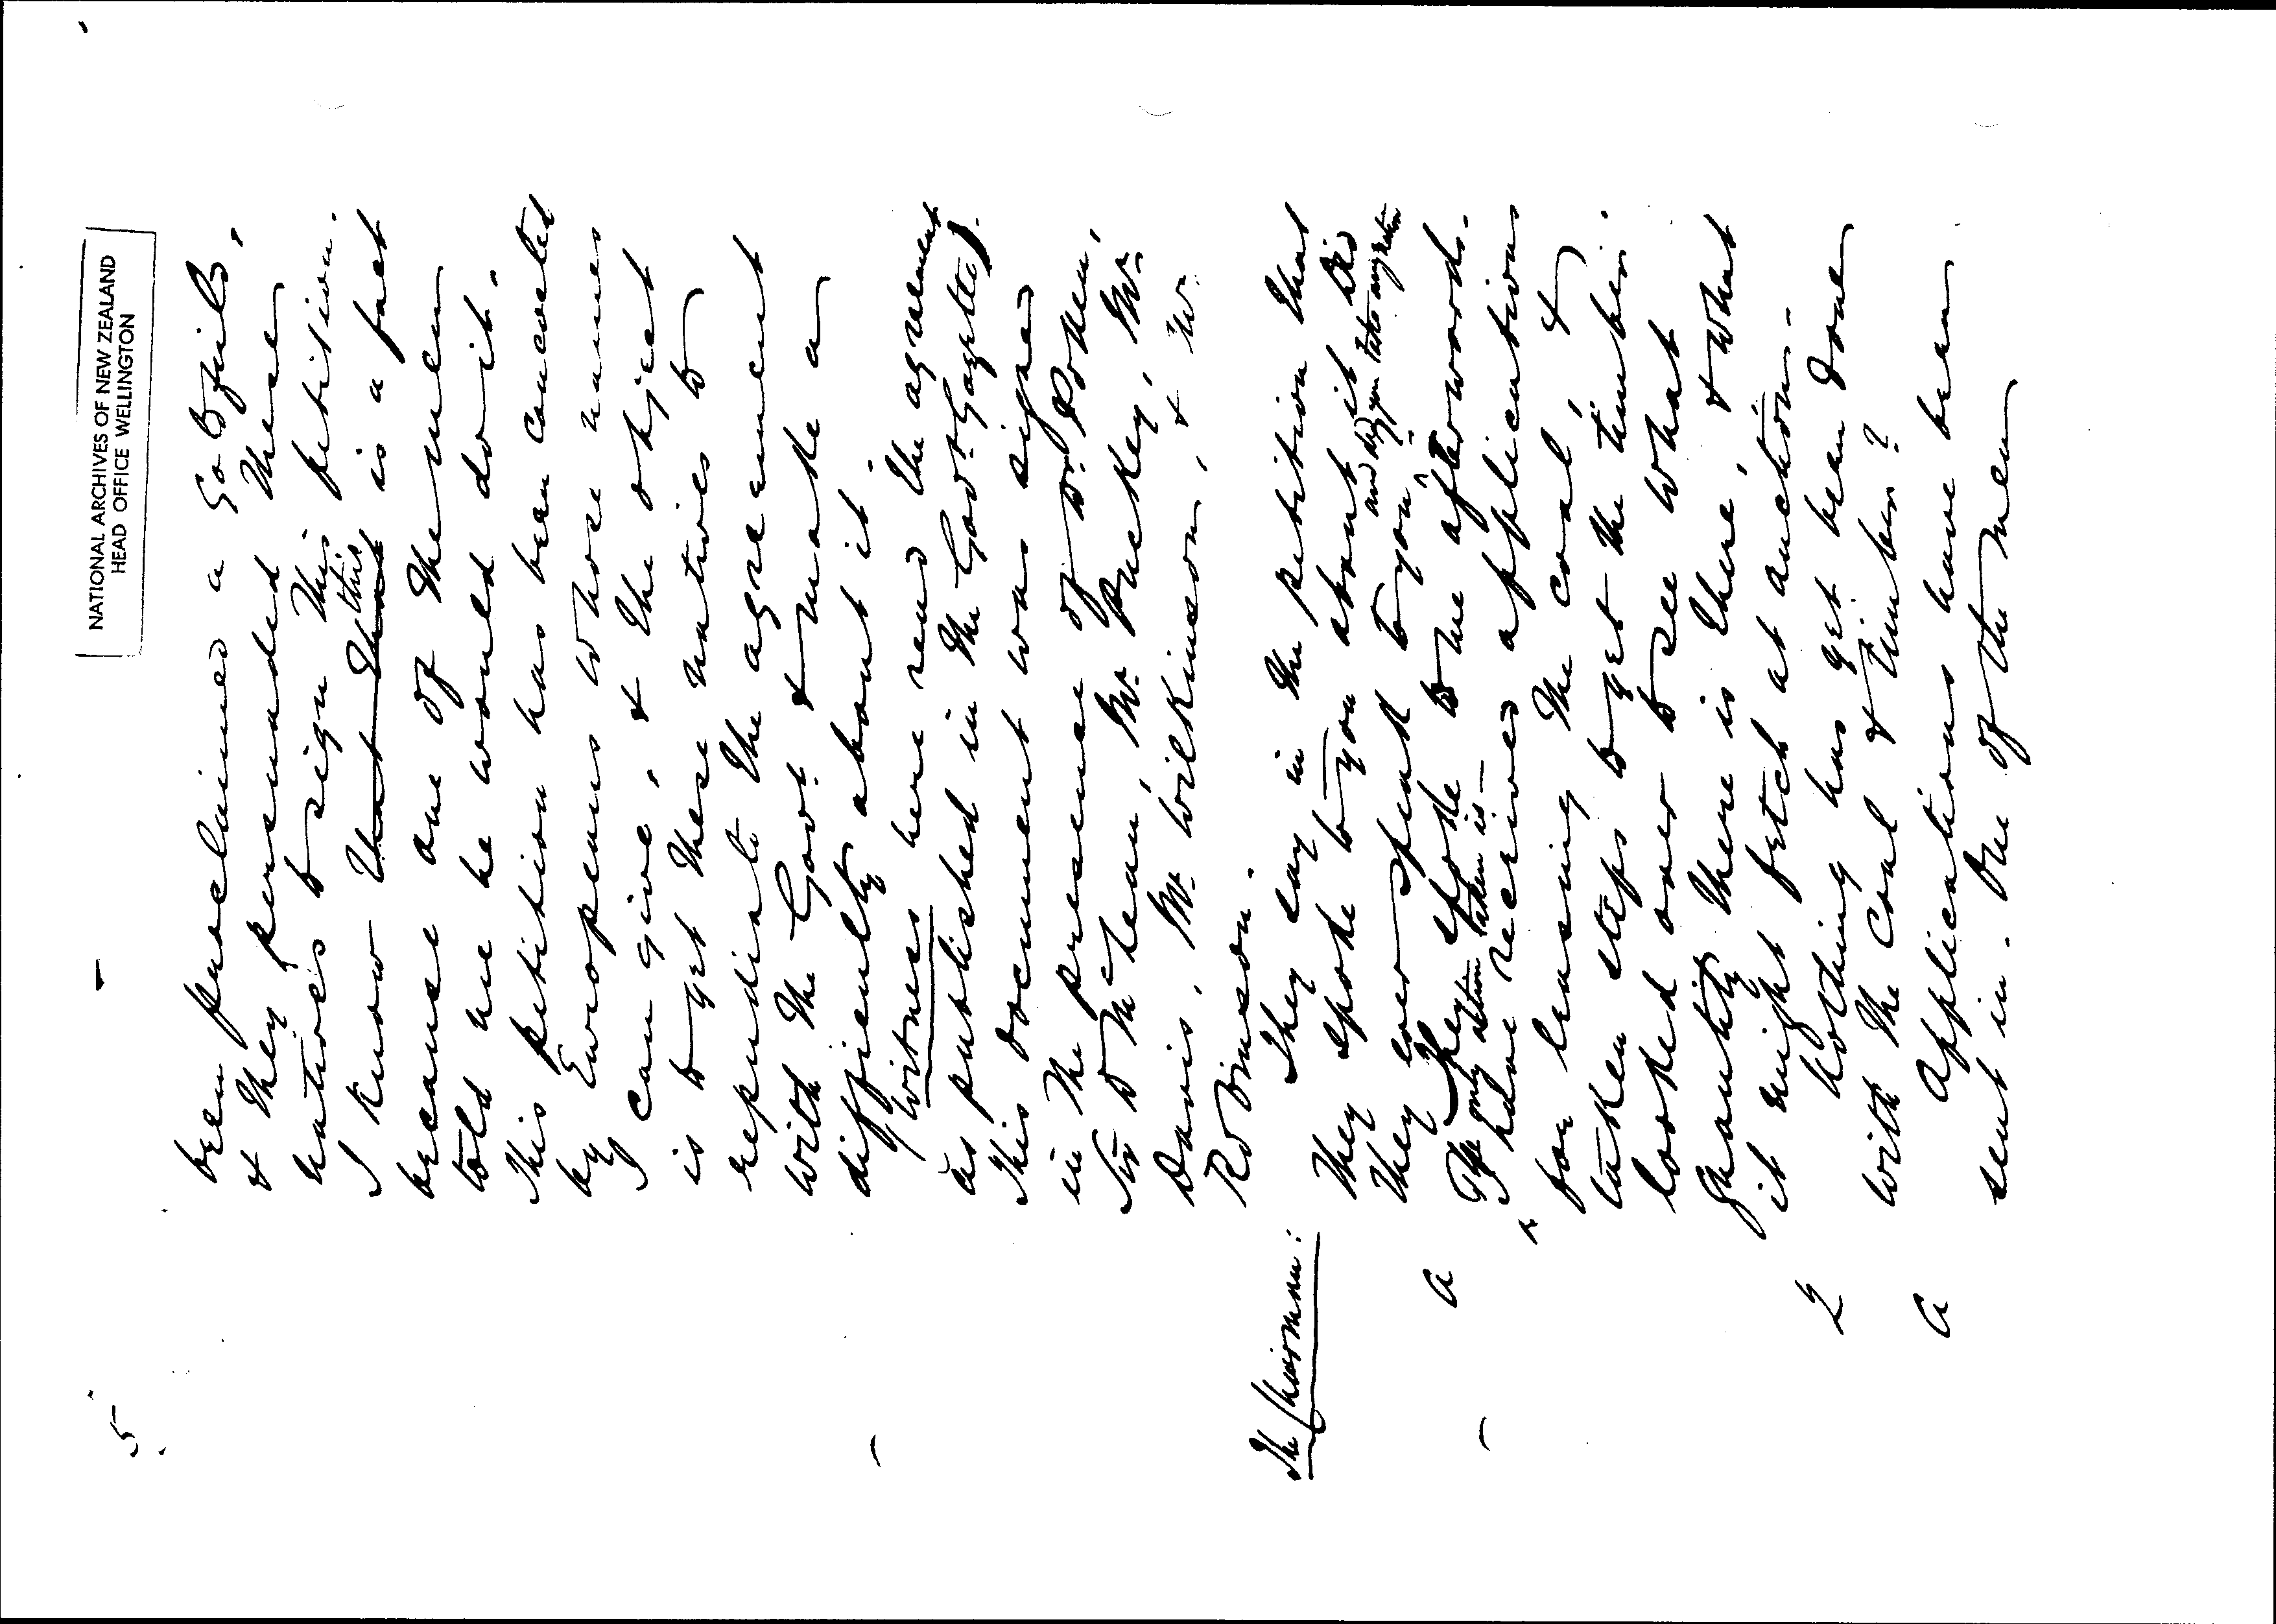 5
NATIONAL ARCHIVES OF NEW ZEALAND
HEAD OFFICE WELLINGTON
been proclaimed a Goldfield,
& they persuaded these
natives to sign this petition.
I know that that this is a fact
because one of the men
told me he would do it.
This petition has been concocted
by Europeans whose names
I can give, & the object
is to get these natives to
repudiate the agreement
with the Govt. & make a
difficulty about it.
(Witness here read the agreement
as published in the Govt. Gazette).
This document was signed
in the presence of Dr. Pollen,
Sir D McLean, Mr. Puckey, Mr.
Davis, Mr. Wilkinson, & Mr.
Robinson.
The Chairman: They say in the petition that
they spoke to you about it. Did
they ever speak to you and did you take any action
A They spoke to me afterwards.
The only action taken is
I have received applications
for leasing the coal, &
taken steps to get the timber
looked over to see what
quantity there is there, & what
it might fetch at auction.
Q Nothing has yet been done
with the coal & timber?
A Applications have been
sent in. One of the men